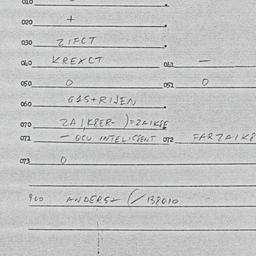 010
020 +
030 ZIFCT
040 KREXCT 041 —
050 0 051 0
060 GAS+RIJEN
070 ZAIK8ER- )=ZAIK8E
071 - GCU INTELIGENT 072 FARZAIK8
073 0
900 ANDERS+ (/138010